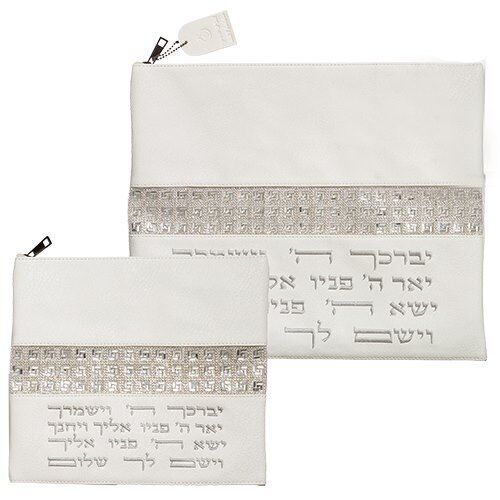 יברכך ה' וישמרך
יאר ה' פניו אל
ישא ה' פניו
וישם לך
יברכך ה' וישמרך
יאר ה' פניו אליך ויחנך
ישא ה' פניו אליך
וישם לך שלום